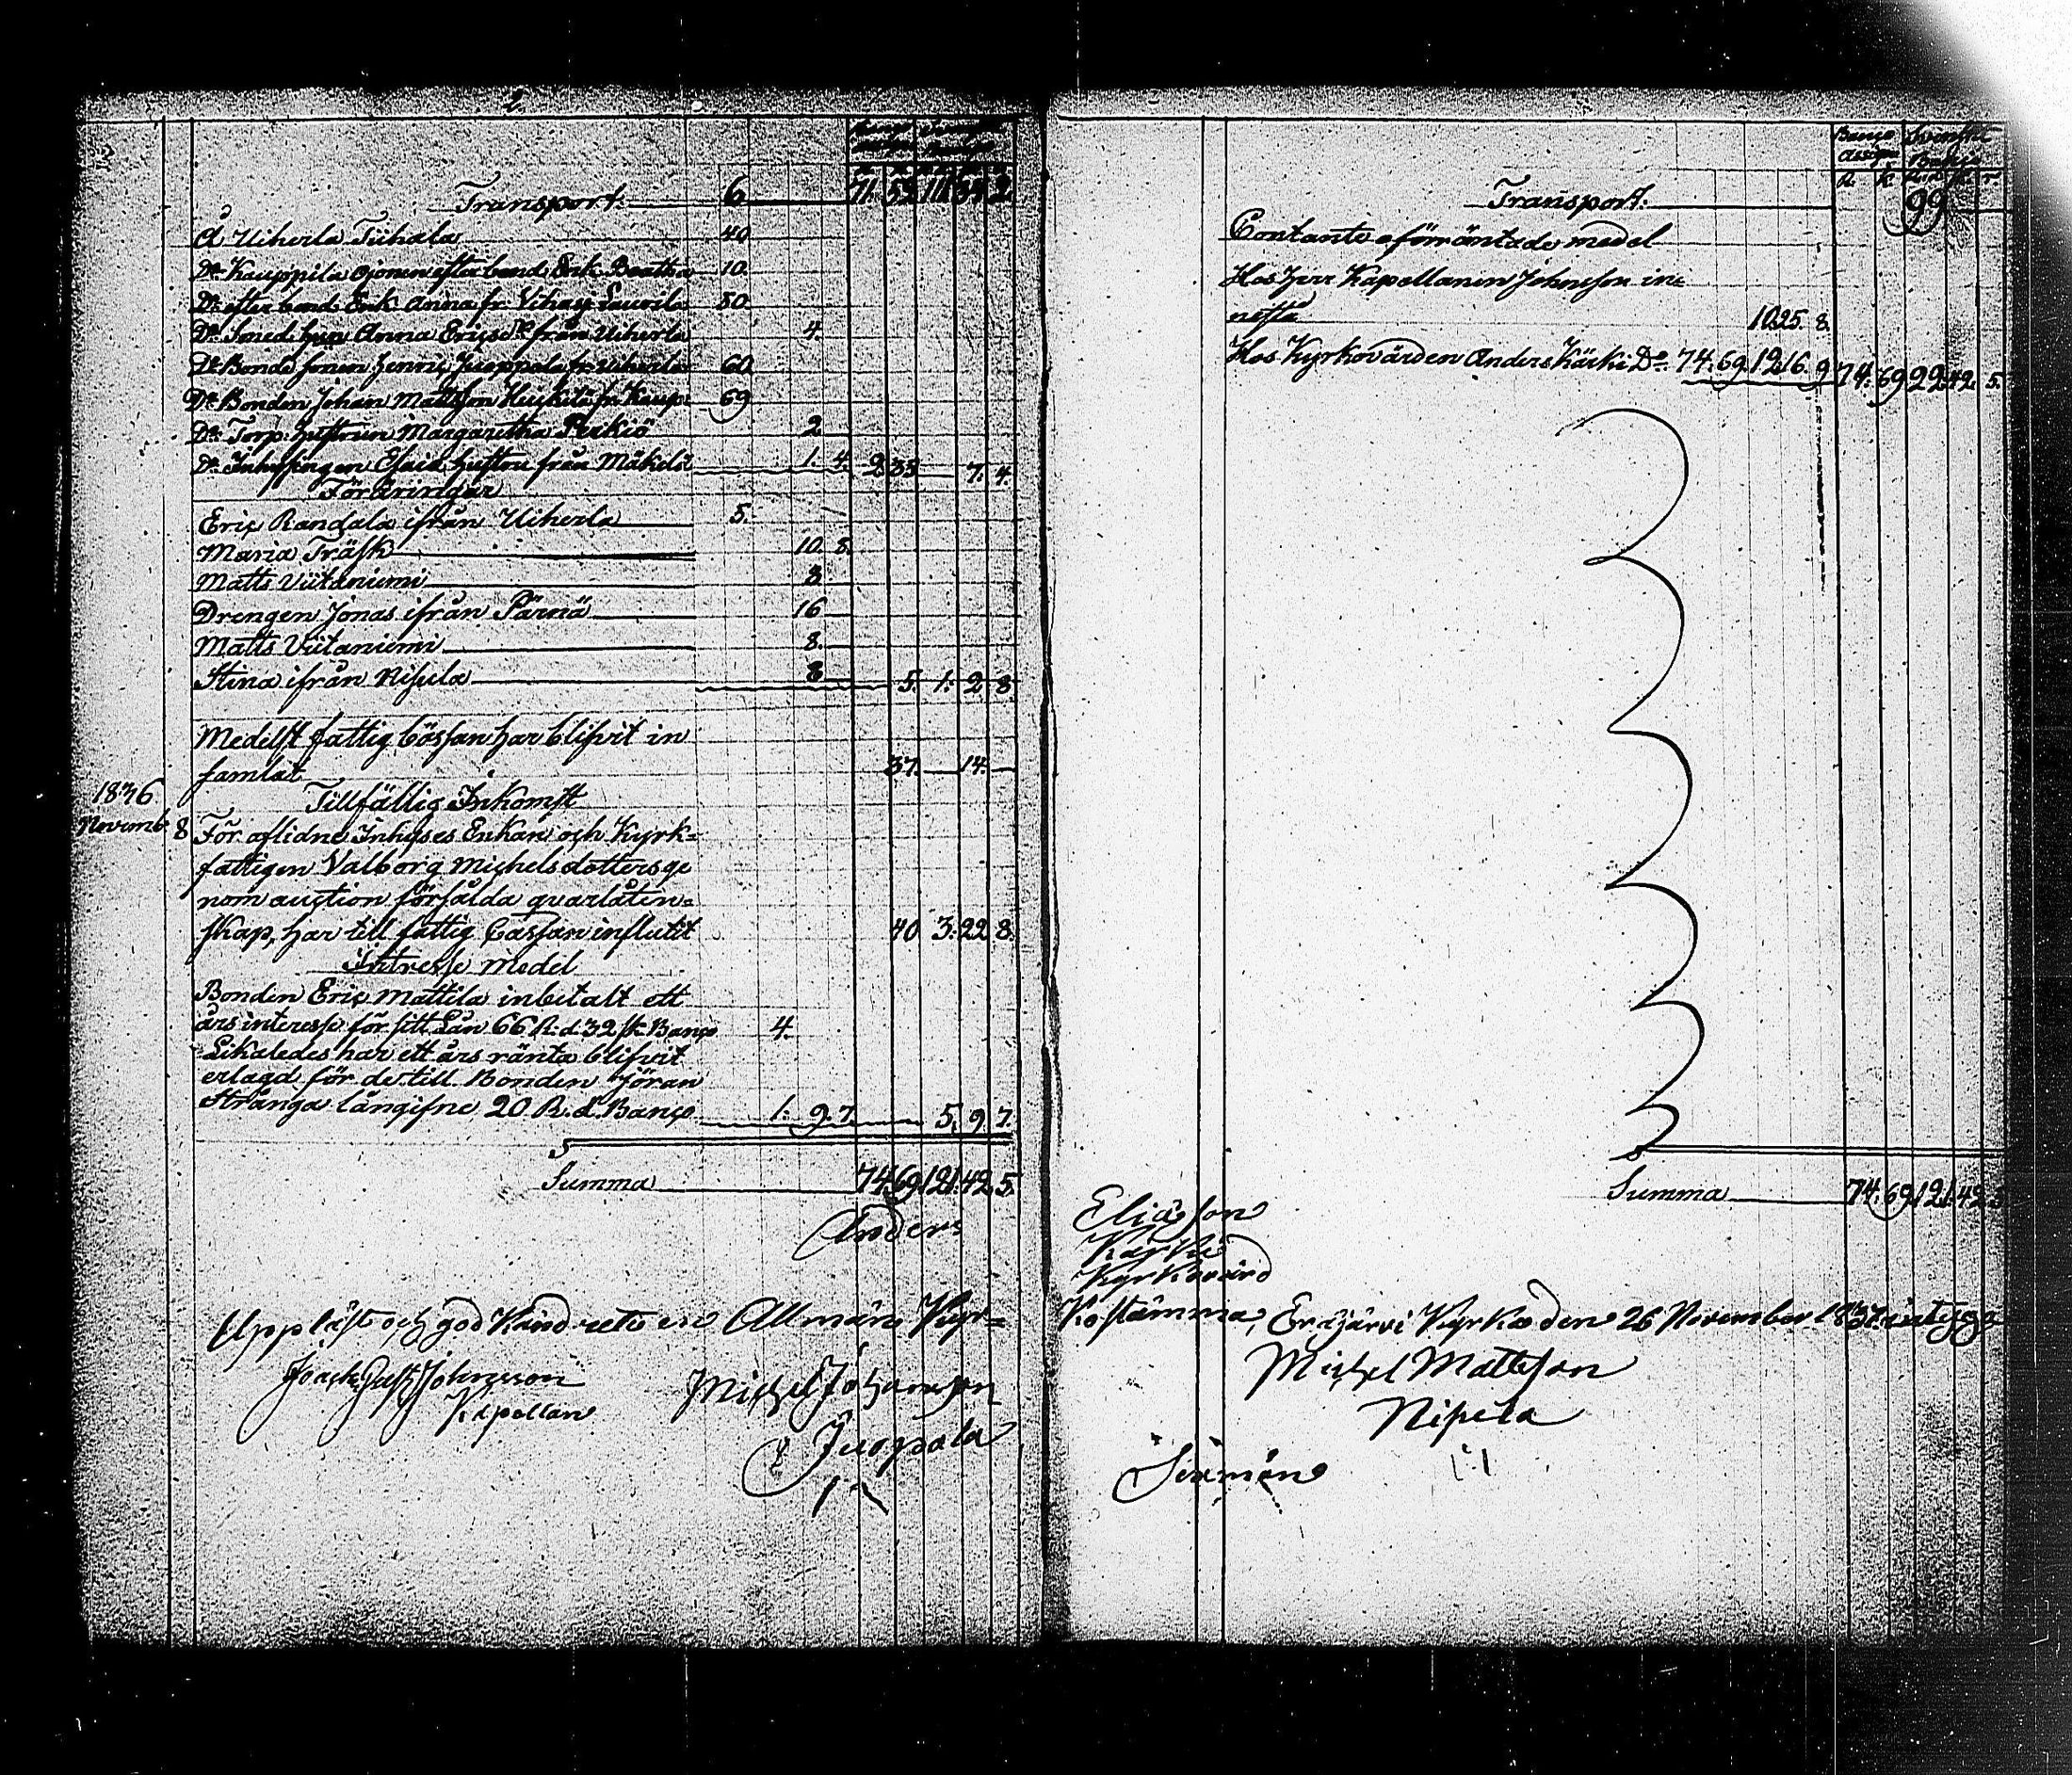 2.
Transport. 6. 71. 52. 111. 34. 2.
Å Uiherla Tuhala 40.
Do Kauppila Ojonen efter bond. Enk. Beatha 10.
Do efter bond. Enk. Anna fr. Vihasj. Laurila 80.
Do Smed. hun Anna Ericsdr från Uiherla 4.
Do Bonde sonen Henric Juoppala fr. Uiherla 60.
Do Bonden Johan Mattsson Heikilä fr. Kaup: 69
Do Torp. hustrun Margaretha Perkiö 2.
Do Inhysingen Esaia hustru från Mäkelä 1. 4. 2 35 7. 4.
Föräringar
Eric Randala ifrån Uiherla 5.
Maria Träsk 10. 8.
Matts Viitaniemi 8.
Drengen Jonas ifrån Pärnä 16
Matts Viitaniemi 8.
Stina ifrån Nipula 8 5. 1. 2 8.
Medelst fattig bössan har blifvit in
samlat 37. 14.
1836 Tillfällig Inkomst
Novemb. 8 För aflidne Inhyses Enkan och Kyrk=
fattigen Valborg Michelsdotters ge
nom auction försålda qvarlåten=
skap, har till fattig Cassan influtit 40 3. 22 8.
Intresse medel
Bonden Eric Mattila inbetalt ett
års interesse för sitt Lån 66 R.d. 32 sk. Banco 4.
Likaledes har ett års ränta blifvit
erlagd för de till Bonden Jöran
Stränga långifne 20 R.d. Banco 1. 9. 7. 5. 9. 7.
Summa 74. 69. 121. 42. 5.
Anders
Uppläst och god Känd rete en Allmän Kyr=
Joach. Gust. Johnsson
Kapellan
Michel Johansson
Juopala
Banco Assign. Svenskt Banco
R. K. R.d. sk. r.
Transport. 99
Contante oförräntade medel
Hos Herr Kapellanen Johnsson in=
nesta 10. 25. 8.
Hos Kyrkovärden Anders Kärki Do. 74. 69. 12. 16. 9. 74. 69. 22. 42. 5.
Summa 74. 69. 121. 42. 5
Eliasson
Kärki
Kyrkovärd
Kostämma, Eräjärvi Kyrka den 26 November 1837. intyga
Michel Mattsson
Nipula
Sexmän